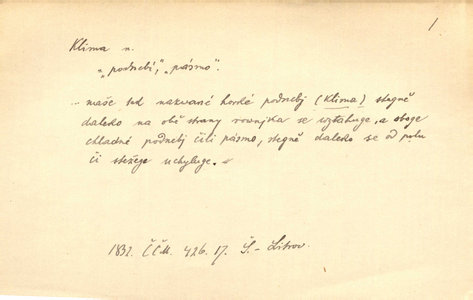 1
Klima n.
„podnebí", „pásmo".
.. naše tak nazwané horké podnebj (Klima) stegně
daleko na obě strany rownjka se wztahuge, a oboge
chladné podnebj čili pásmo, stegně daleko se od polu
či stežege uchyluge.
1832. ČČM. 426. 17. Š.- Litrov.